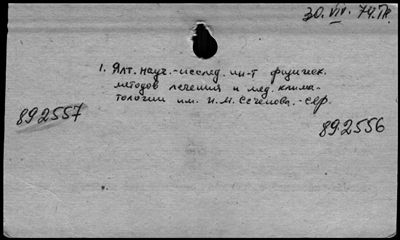 30. VII. 74.Пк
1. Ялт. науч.-исслед. ин-т физическ.
методов лечения и мед. клима-
тологии им. И.М. Сеченова. - свр.
892557
892556